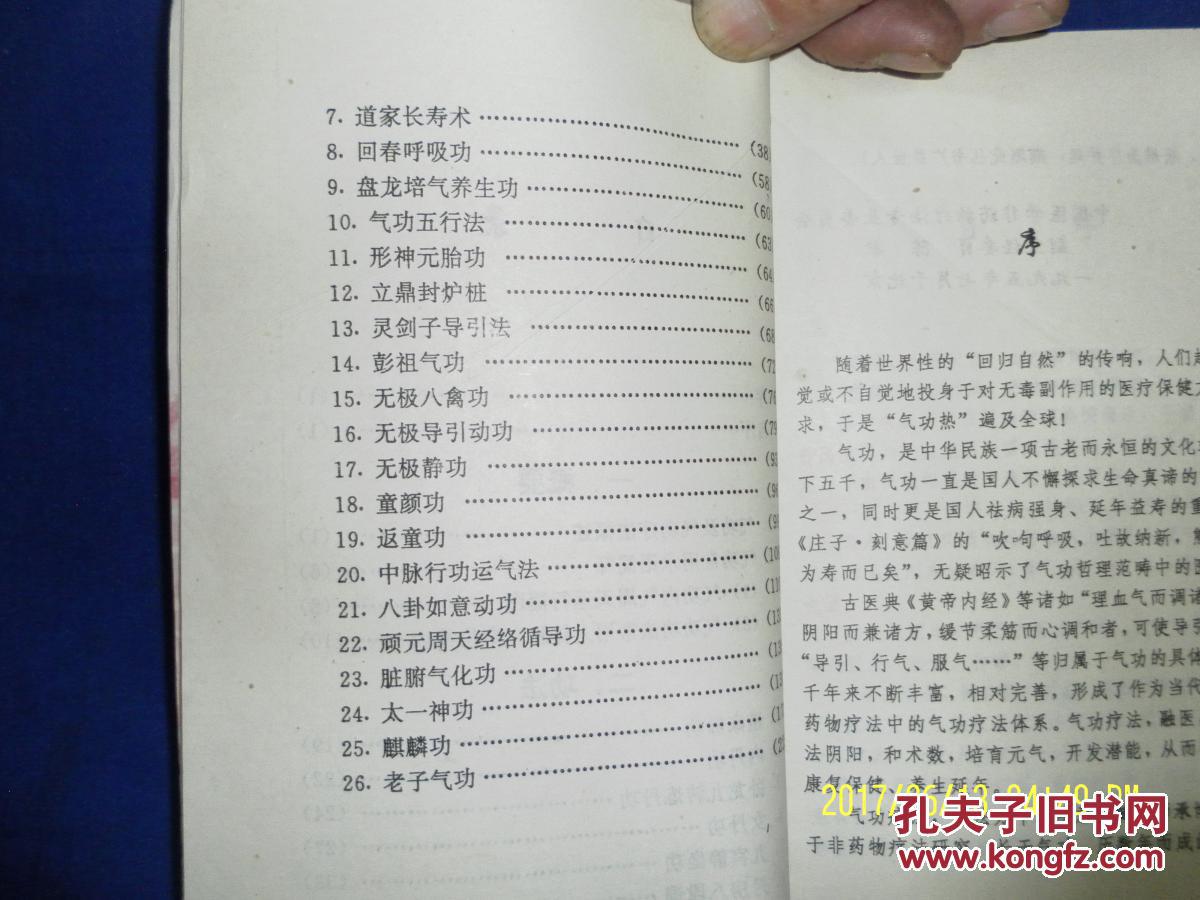 7. 道家长寿术 ……………………………… (38)
8. 回春呼吸功 ……………………………… (58)
9. 盘龙培气养生功 ………………………… (60
10. 气功五行法 ……………………………… (63
11. 形神元胎功 ……………………………… (64
12. 立鼎封炉桩 ……………………………… (66
13. 灵剑子导引法 …………………………… (68
14. 彭祖气功 ………………………………… (72
15. 无极八禽功 ……………………………… (76
16. 无极导引动功 …………………………… (79
17. 无极静功 ………………………………… (9
18. 童颜功 …………………………………… (9
19. 返童功 …………………………………… (9
20. 中脉行功运气法 ………………………… (10
21. 八卦如意动功 …………………………… (11
22. 顽元周天经络循导功 …………………… (13
23. 脏腑气化功 ……………………………… (13
24. 太一神功 ………………………………… (1
25. 麒麟功 …………………………………… (1
26. 老子气功 ………………………………… (2
序
随着世界性的“回归自然”的传响，人们
觉或不自觉地投身于对无毒副作用的医疗保健
求，于是“气功热”遍及全球！
气功，是中华民族一项古老而永恒的文化
下五千，气功一直是国人不懈探求生命真谛的
之一，同时更是国人祛病强身、延年益寿的重
《庄子·刻意篇》的“吹句呼吸，吐故纳新，
为寿而已矣”，无疑昭示了气功哲理范畴中的医
古医典《黄帝内经》等诸如“理血气而调诸
阴阳而兼诸方，缓节柔筋而心调和者，可使导引
“导引、行气、服气……”等归属于气功的具体
千年来不断丰富，相对完善，形成了作为当代
药物疗法中的气功疗法体系。气功疗法，融医
法阴阳，和术数，培育元气，开发潜能，从而
康复保健、养生延年。
气功
于非药物疗法研究
孔夫子旧书网
www.kongfz.com